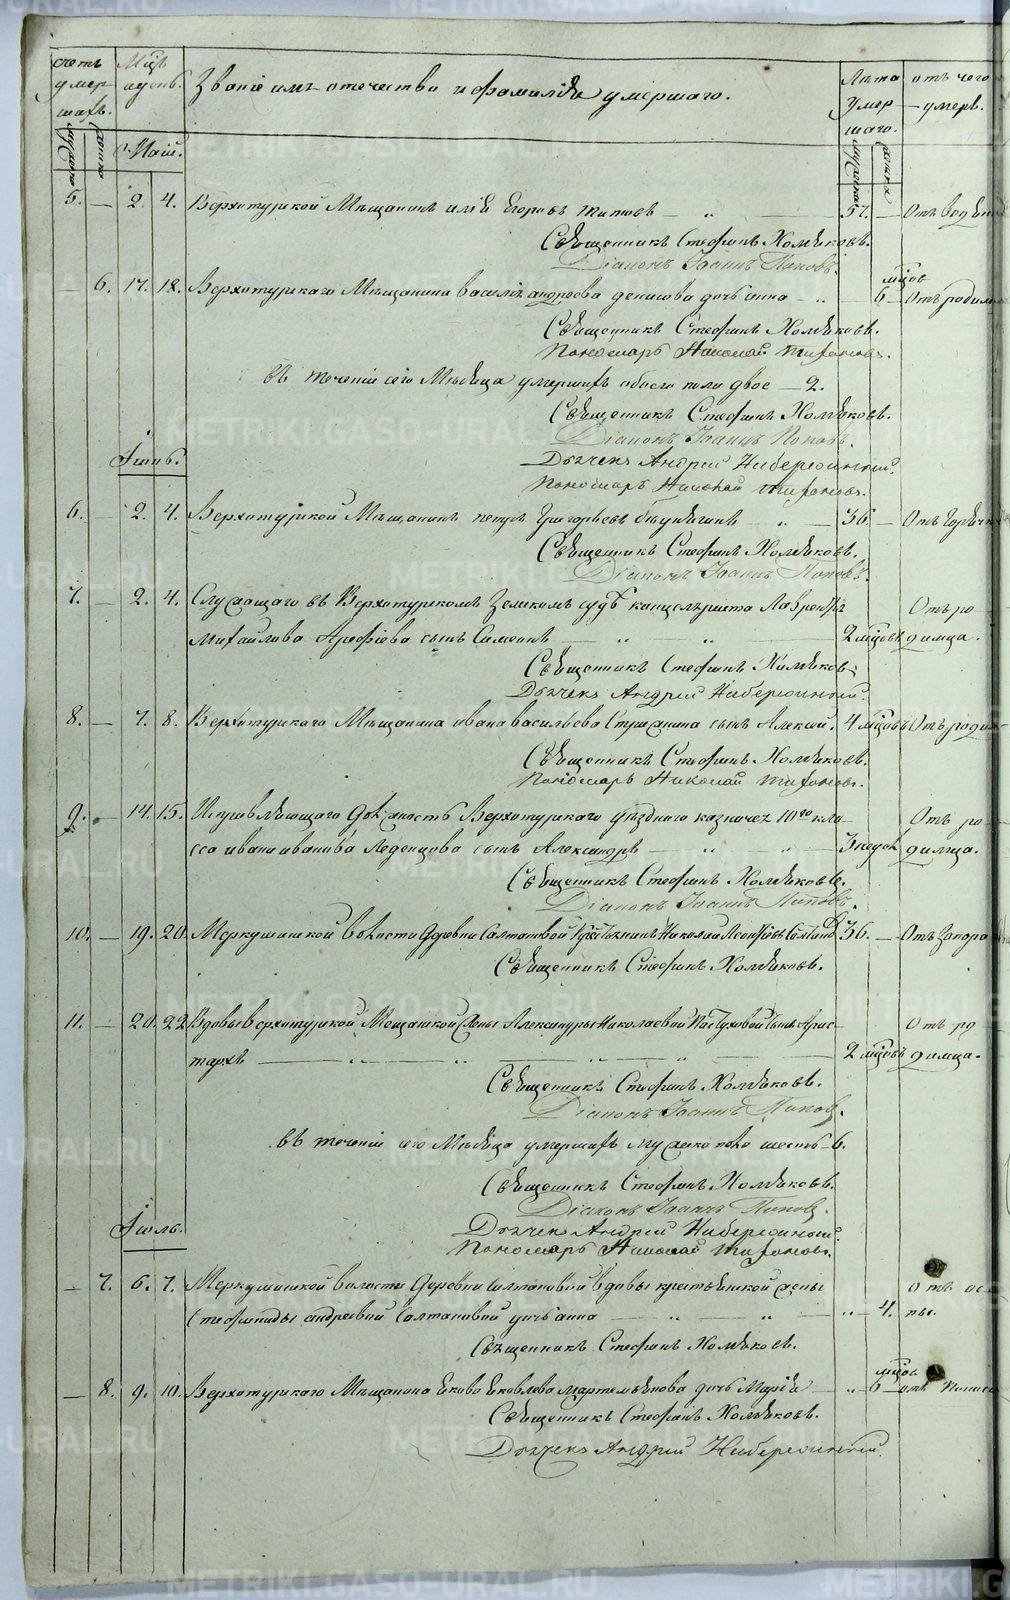 счетъ умершихъ. Мцъ и день. Званіе имя отечество и фамилія умершаго. Лѣта умершаго. отъ чего умеръ.
мужеска женска Маій. мужеска женска
5. — 2. 4. Верхотурской Мѣщанинъ илія Егоровъ титовъ — „ — 57. — Отъ водяной
Священникъ Стефанъ Холмѣковъ.
Діаконъ Іоаннъ Поповъ.
— 6. 17. 18. Верхотурскаго Мѣщанина василья андреева денисова дочь анна — „ мцов 6 Отъ родим
Священникъ Стефанъ Холмѣковъ.
Пономарь Николай
въ теченіи сего Мѣсяца умершихъ обоего пола двое — 2.
Священникъ Стефанъ Холмѣковъ.
Діаконъ Іоаннъ Поповъ.
Дьячекъ Андрей
Пономарь Николай
Іюнь.
6. — 2. 4. Верхотурской Мѣщанинъ петръ Григорьевъ — „ — 36 — Отъ Горячк
Священникъ Стефанъ Холмѣковъ.
Діаконъ Іоаннъ Поповъ.
7. — 2. 4. Служащаго въ Верхотурскомъ Земскомъ судѣ канцеляриста Лаврентья Отъ ро
Михайлова Арефіева сынъ Симеонъ — „ „ — 2 мцовъ димца.
Священникъ Стефанъ Холмѣков
Дьячекъ Андрей
8. — 7. 8. Верхотурскаго Мѣщанина ивана васильева сынъ Алексій. 4 мцовъ Отъ родим
Священникъ Стефанъ Холмѣковъ.
Пономарь Николай
9. — 14. 15. Исправляющаго должность Верхотурскаго уѣзднаго казначея 10го кла- Отъ ро
сса ивана иванова Леденцова сынъ Александръ — „ „ — 3 недѣл димца.
Священникъ Стефанъ Холмѣковъ.
Діаконъ Іоаннъ Поповъ.
10. — 19. 20. Меркушинской волости деревни Салтановой Крестьянинъ Николай 36. — Отъ Запора
Священникъ Стефанъ Холмѣковъ.
11. — 20. 22. Вдовы верхотурской Мещанской Жены Александры Николаевой сынъ Арис-
тархъ — „ „ „ „ — 2 мцовъ Отъ родимца.
Священникъ Стефанъ Холмѣковъ.
Діаконъ Іоаннъ Поповъ.
въ теченіи сего Мѣсяца умершихъ мужеска пола шесть — 6.
Священникъ Стефанъ Холмѣковъ.
Діаконъ Іоаннъ Поповъ.
Іюль. Дьячекъ Андрей
Пономарь Николай
— 7. 6. 7. Меркушинской волости Деревни Салтановой вдовы крестьянской жены Отъ ос
Стефаниды андреевой Салтановой дочь анна — „ „ „ 4. пы.
Священникъ Стефанъ Холмѣковъ.
— 8. 9. 10. Верхотурскаго Мѣщанина Якова Яковлева мартемьянова дочь Марія — „ мцов 6 отъ
Священникъ Стефанъ Холмѣковъ.
Дьячекъ Андрей
METRIKI.GASO-URAL.RU